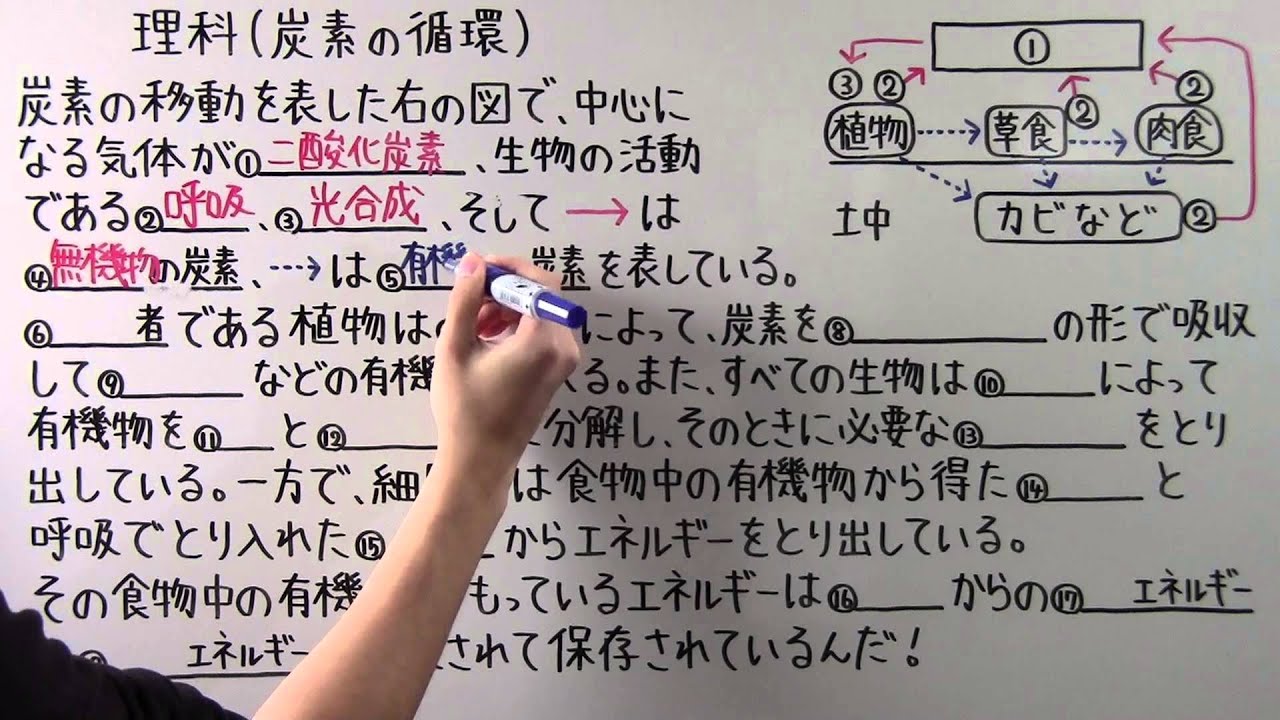 理科(炭素の循環)
炭素の移動を表した右の図で、中心に
なる気体が①二酸化炭素、生物の活動
である②呼吸、③光合成、そして→は
④無機物の炭素、⇢は⑤有機 炭素を表している。
⑥ 者である植物は によって、炭素を⑧ の形で吸収
して⑨ などの有機 る。また、すべての生物は⑩ によって
有機物を⑪ と⑫ 分解し、そのときに必要な⑬ をとり
出している。一方で、細 は食物中の有機物から得た⑭ と
呼吸でとり入れた⑮ からエネルギーをとり出している。
その食物中の有機 もっているエネルギーは⑯ からの⑰ エネルギー
エネルギー されて保存されているんだ!
①
③ ② ② ②
植物 草食 肉食
土中 カビなど ②